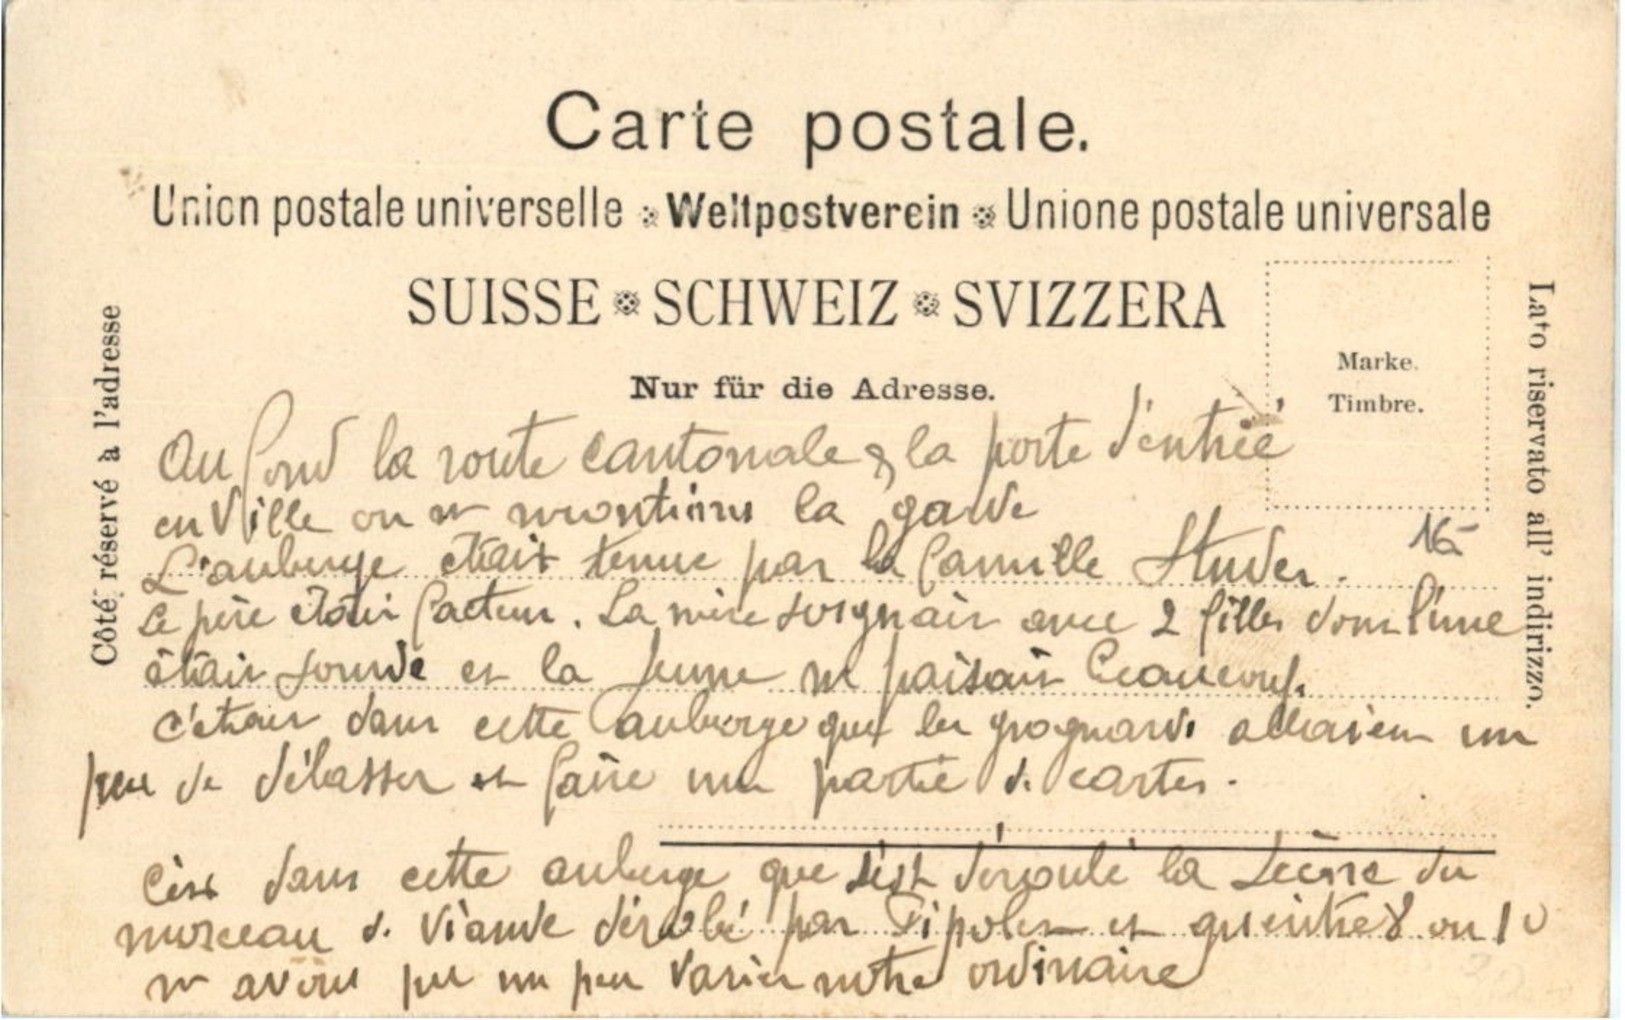 Carte postale.
Union postale universelle Weltpostverein Unione postale universale
SUISSE SCHWEIZ SVIZZERA
Nur für die Adresse.
Marke.
Timbre.
Côté réservé à l'adresse
Lato riservato all' indirizzo.
16-
Au fond la route cantonale & la porte d'entrée
en Ville ou n montions la garde
L'auberge était tenue par la famille Studer.
Le père était facteur. La mère soignait avec 2 filles dont l'une
était sourde et la jeune ne faisait beaucoup.
C'était dans cette auberge que les grognards allaient un
peu se délasser et faire une partie de cartes.
C'est dans cette auberge que s'est déroulé la scène du
morceau de viande dérobé par et qu'entre 8 ou 10
n avons pu un peu varier notre ordinaire